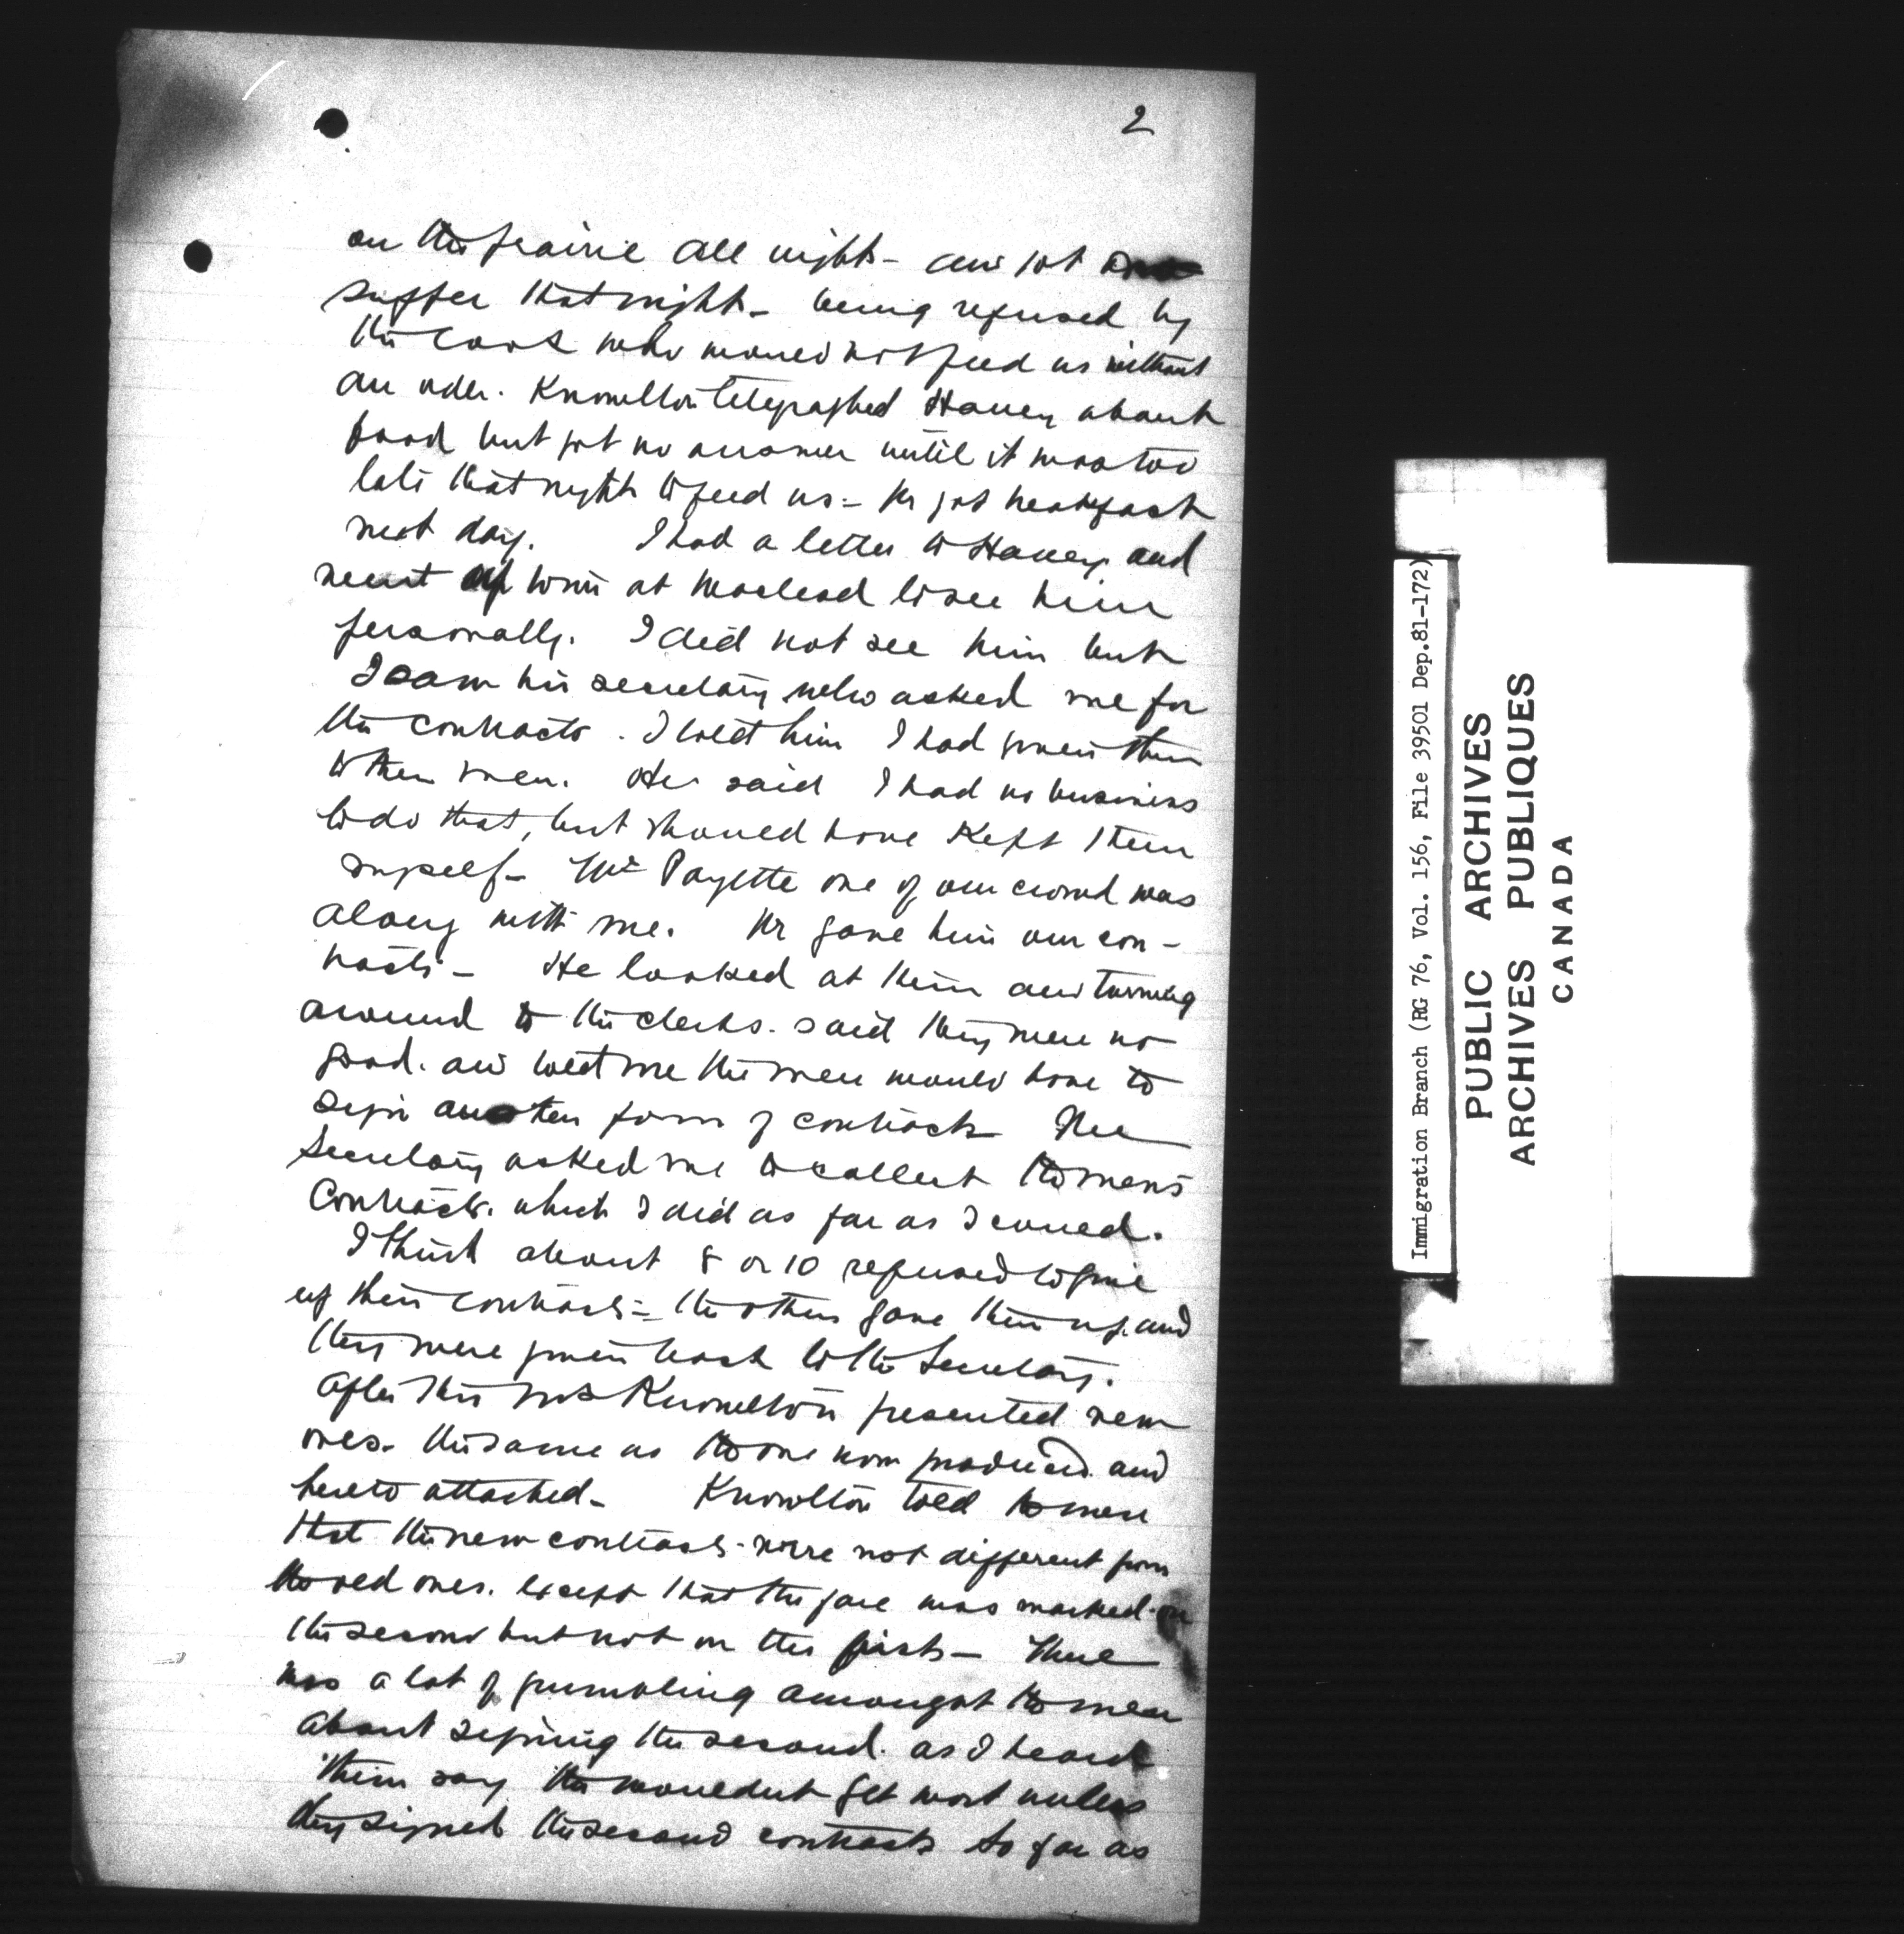 2
on the prairie all night - and got no
suffer that night - being refused by
the cook who would not feed us without
an order. Knowlton telegraphed Haney about
food but got no answer until it was too
late that night to feed us - We got breakfast
next day. I had a letter to Haney and
went up town at Macleod to see him
personally. I did not see him but
I saw his secretary who asked me for
the contracts. I told him I had given them
to the men. He said I had no business
to do that, but should have kept them
myself - Mr Payette one of our crowd was
along with me. We gave him our con-
tracts - He looked at them and turning
around to the clerks. said they were no
good. and told me the men would have to
sign another form of contract The
Secretary asked me to collect the men's
Contracts. which I did as far as I could.
I think about 8 or 10 refused to give
up their contracts - the others gave them up. and
they were given back to the Secretary.
After this Knowlton presented new
ones. the same as the one now produced. and
hereto attached - Knowlton told the men
that the new contracts were not different from
the old ones. except that the fare was marked on
the second but not on the first - There
was a lot of grumbling amongst the men
about signing the second. as I heard
them say they wouldnt get work unless
they signed the second contracts So far as
Immigration Branch (RG 76, Vol. 156, File 39501 Dep.81-172)
PUBLIC ARCHIVES
ARCHIVES PUBLIQUES
CANADA